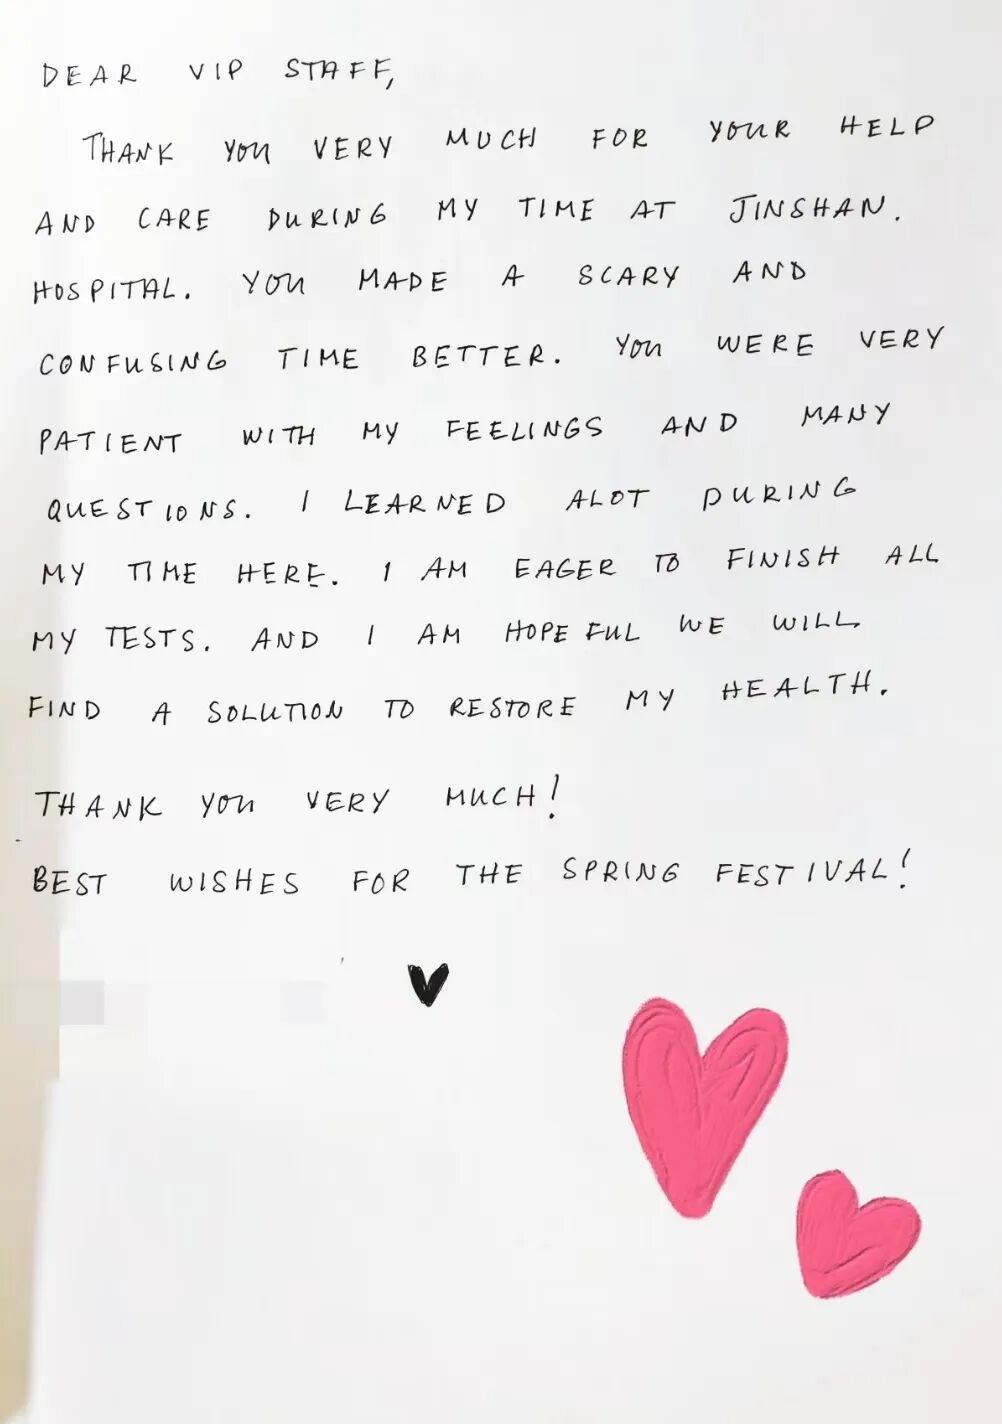 DEAR VIP STAFF,
THANK YOU VERY MUCH FOR YOUR HELP
AND CARE DURING MY TIME AT JINSHAN.
HOSPITAL. YOU MADE A SCARY AND
CONFUSING TIME BETTER. YOU WERE VERY
PATIENT WITH MY FEELINGS AND MANY
QUESTIONS. I LEARNED ALOT DURING
MY TIME HERE. I AM EAGER TO FINISH ALL
MY TESTS. AND I AM HOPEFUL WE WILL
FIND A SOLUTION TO RESTORE MY HEALTH.
THANK YOU VERY MUCH!
BEST WISHES FOR THE SPRING FESTIVAL!